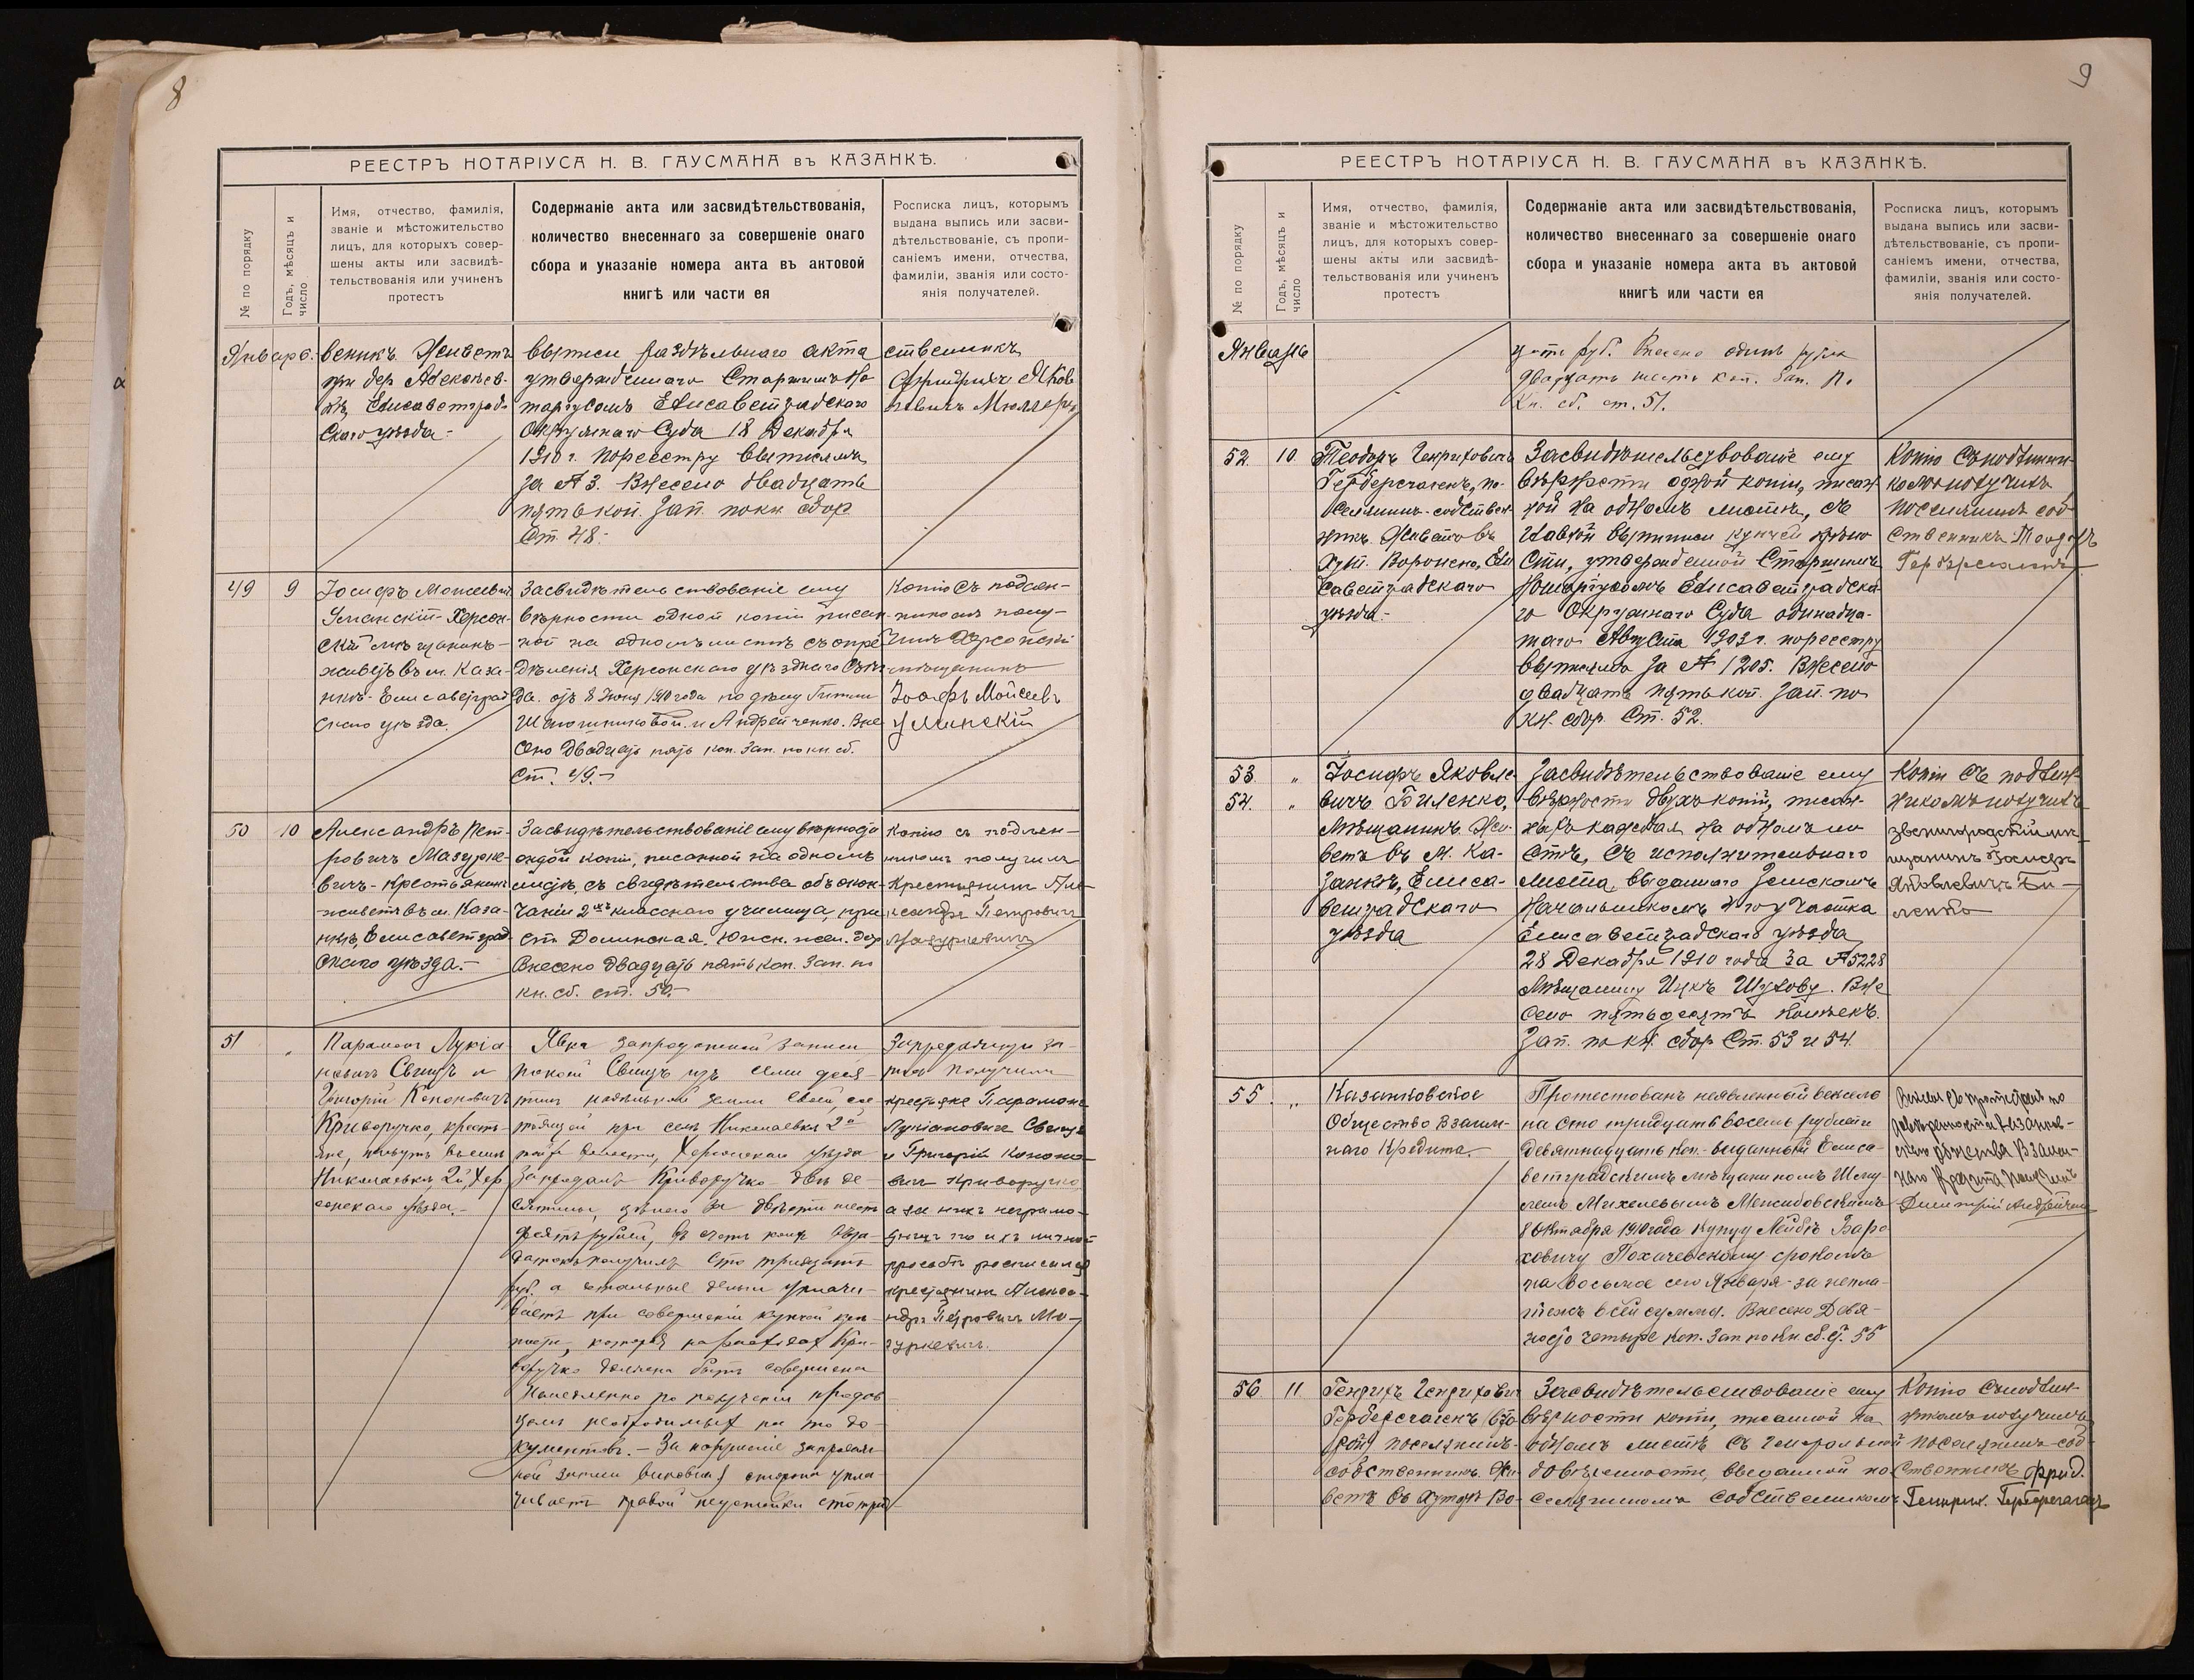 8
РЕЕСТРЪ НОТАРІУСА Н. В. ГАУСМАНА въ КАЗАНКѢ.
№ по порядку
Годъ, мѣсяцъ и число
Имя, отчество, фамилія,
званіе и мѣстожительство
лицъ, для которыхъ совер-
шены акты или засвидѣ-
тельствованія или учиненъ
протестъ
Содержаніе акта или засвидѣтельствованія,
количество внесеннаго за совершеніе онаго
сбора и указаніе номера акта въ актовой
книгѣ или части ея
Росписка лицъ, которымъ
выдана выпись или засви-
дѣтельствованіе, съ пропи-
саніемъ имени, отчества,
фамиліи, званія или состо-
янія получателей.
Январь.
веникъ Живетъ
при дер.
Елисаветград-
скаго уѣзда.-
выписи раздѣльнаго акта
утвержденнаго Старшимъ Но
таріусомъ Елисаветградскаго
Окружнаго Суда 18 Декабря
1910 г. пореестру
за № 3. Внесено двадцать
пять коп. Зап. по кн. сбор.
Ст. 48.-
ственникъ
Фридрихъ Яков
левичъ Мюллеръ
49
9
Іосифъ Моисеевич
Уманскій-Херсон-
скій мѣщанинъ-
живетъ въ м. Каза-
нкѣ-Елисаветград
скаго уѣзда.
Засвидѣтельствованіе ему
вѣрности одной копіи писан-
ной на одномъ листѣ съ опре
дѣленія Херсонскаго уѣзднаго Съѣз
да отъ 8 Іюня 1910 года по дѣлу
и Андрейченко. Вне
сено двадцать пять коп. Зап. по кн. сб.
Ст. 49.-
Копію съ подлин-
никомъ полу-
чилъ Херсонскій
мѣщанинъ
Іосифъ Мойсеевъ
Уманскій
50
10
Александръ Пет-
ровичъ Мазурке-
вичъ-крестьянинъ
живетъ въ м. Каза-
нкѣ, Елисаветград-
скаго уѣзда.-
Засвидѣтельствованіе ему вѣрности
одной копіи, писанной на одномъ
листѣ, съ свидѣтельства объ окон-
чаніи 2хъ класснаго училища, при
ст. Долинская, Южн. жел. дор
Внесено двадцать пять коп. Зап. по
кн. сб. ст. 50.-
Копію съ подлин-
никомъ получилъ
Крестьянинъ Але
ксандръ Петровичъ
Мазуркевичъ
51
„
Парамонъ Лукіа
новичъ Свищъ и
Григорій Кононовичъ
Криворучко, кресть-
яне, живутъ въ селѣ
Николаевкѣ, 2й, Хер
сонскаго уѣзда.-
Явка запродажной записи
по коей Свищъ изъ семи деся-
тинъ надѣльной земли своей, сос-
тоящей при селѣ Николаевкѣ 2й
волости, Херсонскаго уѣзда
запродалъ Криворучко двѣ де-
сятины, цѣною за двѣсти шесть
десятъ рублей, въ счетъ коихъ
задатокъ получилъ сто тридцать
руб. а остальные деньги уплачи-
ваетъ при совершеніи купчей крѣ-
пости, которая на Кри-
воручко должна быть совершена
немедленно по полученіи продав
цомъ необходимыхъ на то до-
кументовъ.- За нарушеніе запродаж-
ной записи виновная сторона упла-
чиваетъ правой неустойки сто трид-
Запродажную за-
пись получили
крестьяне Парамонъ
Лукіановичъ Свищъ
и Григорій Кононо-
вичъ Криворучко,
а за нихъ неграмо-
тныхъ по ихъ личной
просьбѣ росписался
крестьянинъ Алекса-
ндръ Петровичъ Ма-
зуркевичъ.
9
РЕЕСТРЪ НОТАРІУСА Н. В. ГАУСМАНА въ КАЗАНКѢ.
№ по порядку
Годъ, мѣсяцъ и число
Имя, отчество, фамилія,
званіе и мѣстожительство
лицъ, для которыхъ совер-
шены акты или засвидѣ-
тельствованія или учиненъ
протестъ
Содержаніе акта или засвидѣтельствованія,
количество внесеннаго за совершеніе онаго
сбора и указаніе номера акта въ актовой
книгѣ или части ея
Росписка лицъ, которымъ
выдана выпись или засви-
дѣтельствованіе, съ пропи-
саніемъ имени, отчества,
фамиліи, званія или состо-
янія получателей.
Январь
цать руб. Внесено одинъ рубль
двадцать шесть коп. Зап. по
кн. сб. ст. 51.
52.
10
Теодоръ Генриховичъ
Герберсгагенъ, по-
селянинъ-собствен
никъ. Живетъ въ
хут. Воронено, Ели
саветградскаго
уѣзда.-
Засвидѣтельствованіе ему
вѣрности одной копіи, писан
ной на одномъ листѣ, съ
главной выписи купчей крѣпо
сти, утвержденной Старшимъ
Нотаріусомъ Елисаветградска
го Окружнаго Суда одинадца-
таго Августа 1903 г. пореестру
за № 1205. Внесено
двадцать пять коп. Зап. по
кн. сбор. Ст. 52.
Копію съ подлинни-
комъ получилъ
поселянинъ соб-
ственникъ Теодоръ
Герберсгагенъ
53
54.
„
„
Іосифъ Яковле-
вичъ Биленко,
Мѣщанинъ. Жи-
ветъ въ м. Ка-
занкѣ, Елиса-
ветградскаго
уѣзда
Засвидѣтельствованіе ему
вѣрности двухъ копій, писан-
ныхъ каждая на одномъ ли
стѣ, съ исполнительнаго
листа, выданнаго Земскимъ
Начальникомъ 4го участка
Елисаветградскаго уѣзда
28 Декабря 1910 года за № 5228
Мѣщанину Ицкѣ Шухову. Вне
сено пятьдесятъ копѣекъ.
Зап. по кн. сбор Ст. 53 и 54.
Копіи съ подлин-
никомъ получилъ
звенигородскій мѣ
щанинъ Іосифъ
Яковлевичъ Би-
ленко
55.
„
Казанковское
Общество Взаим-
наго Кредита
Протестованъ неявленный вексель
на сто тридцать восемь рублей
девятнадцать коп.- выданный Елиса-
ветградскимъ мѣщаниномъ Шму-
лемъ Михелевымъ
8 Октября 1910 года купцу Лейбѣ Баро
ховичу срокомъ
на восьмое сего Января-за непла-
тежъ всей суммы. Внесено девя-
носто четыре коп. Зап по кн. сб. ст. 55
Вексель съ протестомъ по
довѣренности Казанков-
скаго Общества Взаим-
наго Кредита получилъ
Дмитрій Андрейченко
56
11
Генрихъ Генриховичъ
Герберсгагенъ
поселянинъ-
собственникъ. Жи-
ветъ въ хуторѣ Во-
Засвидѣтельствованіе ему
вѣрности копіи, писанной на
одномъ листѣ съ генеральной
довѣренности, выданной по-
селяниномъ собственникомъ
Копію съ подлин-
никомъ получилъ
поселянинъ-соб-
ственникъ Фрид.
Генрих. Герберсгагенъ